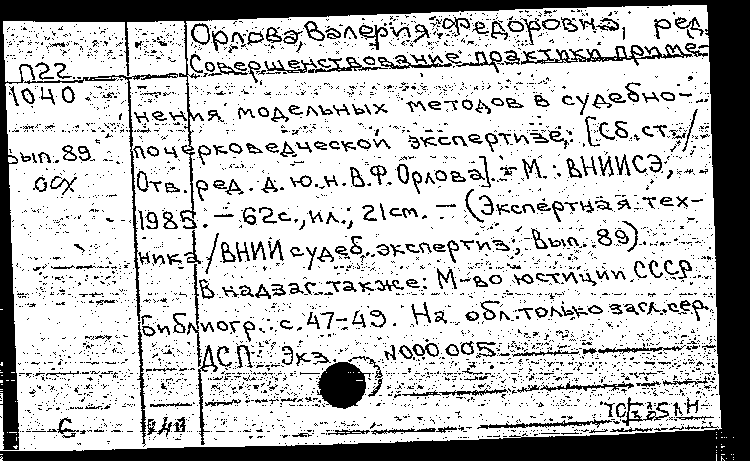 Орлова, Валерия Федоровна, ред.
П22 Совершенствование практики приме-
1040 нения модельных методов в судебно-
Вып. 89 почерковедческой экспертизе: [Сб. ст. /
Отв. ред. д. ю. н. В.Ф. Орлова]. - М.: ВНИИСЭ,
1985. - 62с., ил.; 21см. - (Экспертная тех-
ника / ВНИИ судеб. экспертиз; Вып. 89)
В надзаг. также: М-во юстиции СССР
Библиогр.: с. 47-49. На обл. только загл. сер.
ДСП Экз. N000005
С